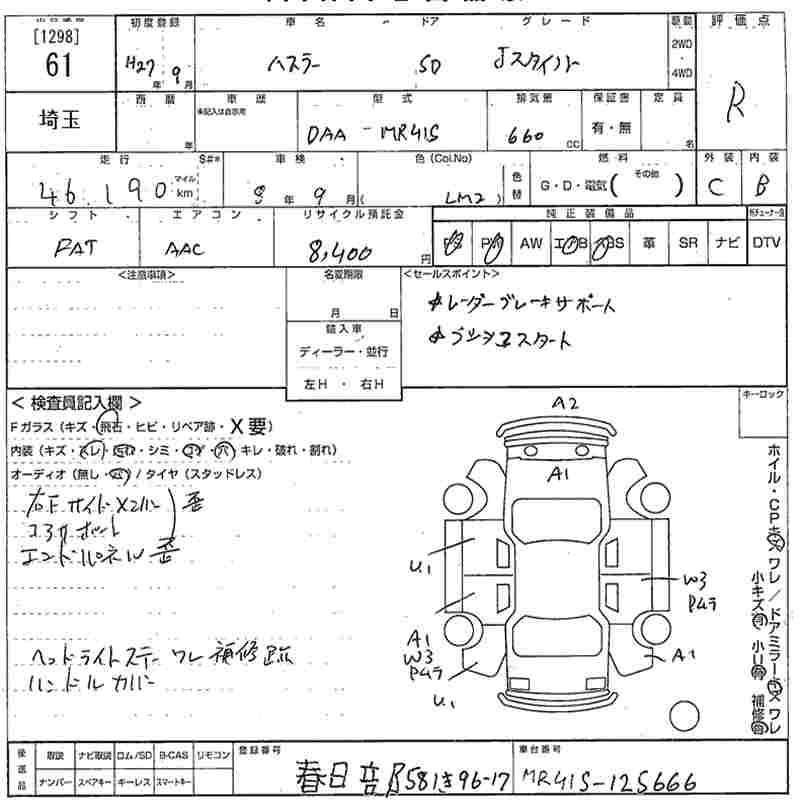 [1298]
61
初度登録
車名
ドア
グレード
駆動
評価点
H27年 9月
ハスラー
5D
Jスタイル
2WD
・
4WD
R
埼玉
西暦
車歴
型式
排気量
保証書
定員
年
未記入は自家用
DAA-MR41S
660 CC
有・無
名
走行
S#*
車検
色(Col.No)
色替
燃料
外装
内装
46,190
マイル
km
8年 9月
(LM2)
G・D・電気( その他 )
C
B
シフト
エアコン
リサイクル預託金
純正装備品
FAT
AAC
8,400円
PS
PW
AW
エアB
ABS
革
SR
ナビ
DTV
<注意事項>
名変期限
<セールスポイント>
月 日
輸入車
ディーラー・並行
左H・右H
レーダーブレーキサポート
プッシュスタート
<検査員記入欄>
キーロック
Fガラス(キズ・飛石・ヒビ・リペア跡・X要)
内装(キズ・スレ・汚れ・シミ・コゲ・穴・キレ・破れ・割れ)
オーディオ(無し・欠)/タイヤ(スタッドレス)
右Fサイドメンバー
コアサポート
歪
エンドパネル 歪
ヘッドライトステー ワレ 補修跡
ハンドルカバー
A2
A1
U1
W3
Pムラ
A1
W3
Pムラ
U1
A1
ホイル・CPキズ ワレ/ドアミラーキズ ワレ
小キズ有 小U有 補修有
後送品
取説
ナビ取説
ロム/SD
B-CAS
リモコン
ナンバー
スペアキー
キーレス
スマートキー
登録番号
春日部 581き96-17
車台番号
MR41S-125666